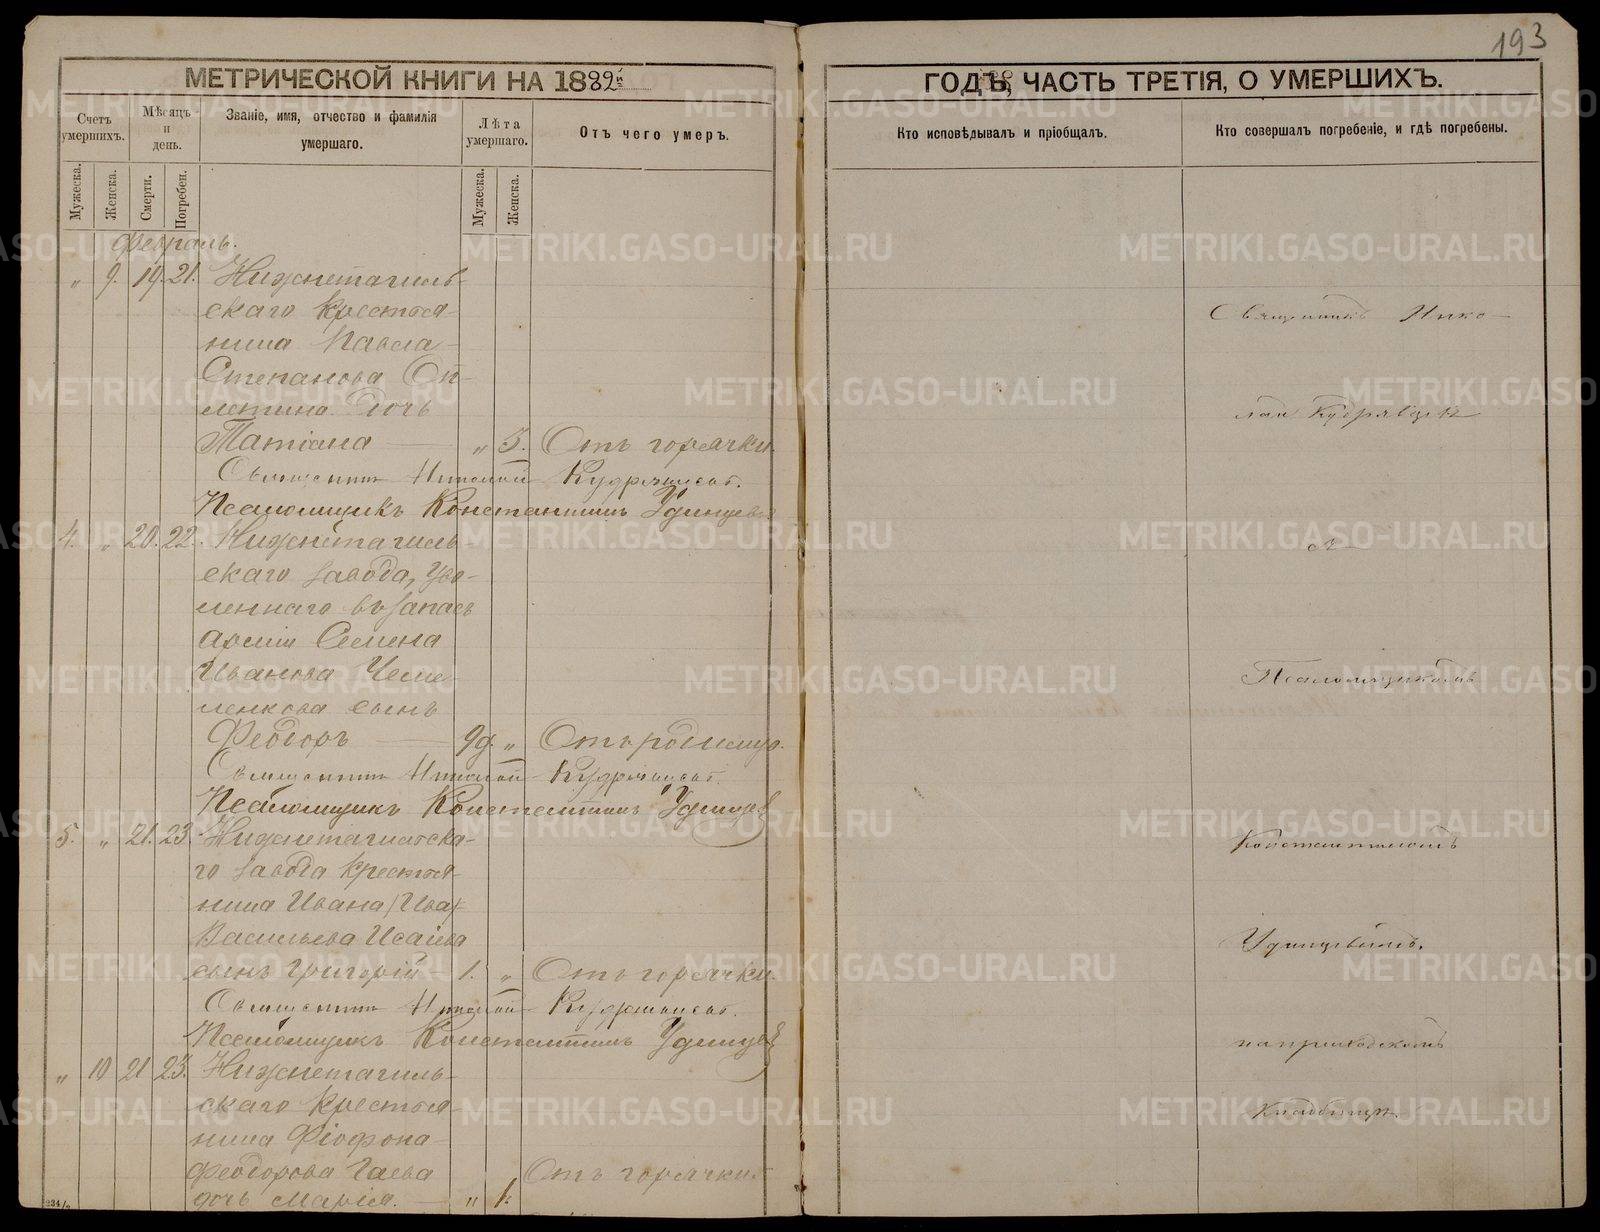 193
МЕТРИЧЕСКОЙ КНИГИ НА 1882й
ГОДЪ, ЧАСТЬ ТРЕТІЯ, О УМЕРШИХЪ.
Счетъ умершихъ.
Мѣсяцъ и день.
Званіе, имя, отчество и фамилія умершаго.
Лѣта умершаго.
Отъ чего умеръ.
Кто исповѣдывалъ и пріобщалъ.
Кто совершалъ погребеніе, и гдѣ погребены.
Мужеска.
Женска.
Смерти.
Погребен.
Мужеска.
Женска.
Февраль.
" 9. 19. 21. Нижнетагиль-
скаго крестья-
нина Павла
Степанова
дочь
Татіана " 3. Отъ горячки.
Священникъ Николай Кудрявцевъ.
Псаломщикъ Константинъ Удинцевъ
4. " 20. 22. Нижнетагиль-
скаго завода, уво-
леннаго въ запасъ
арміи Семена
Иванова
сынъ
Феодоръ 9д. " Отъ родимца.
Священникъ Николай Кудрявцевъ.
Псаломщикъ Константинъ Удинцевъ
5. " 21. 23. Нижнетагильска-
го завода крестья-
нина Ивана
Васильева Исаева
сынъ Григорій 1. " Отъ горячки.
Священникъ Николай Кудрявцевъ.
Псаломщикъ Константинъ Удинцевъ
" 10 21 23. Нижнетагиль-
скаго крестья-
нина
Феодорова Гаева
дочь Марія. " 1. Отъ горячки.
Священникъ Нико-
лай Кудрявцевъ
съ
Псаломщикомъ
Константиномъ
Удинцевымъ.
на приходскомъ
кладбищѣ.
234/2
METRIKI.GASO-URAL.RU